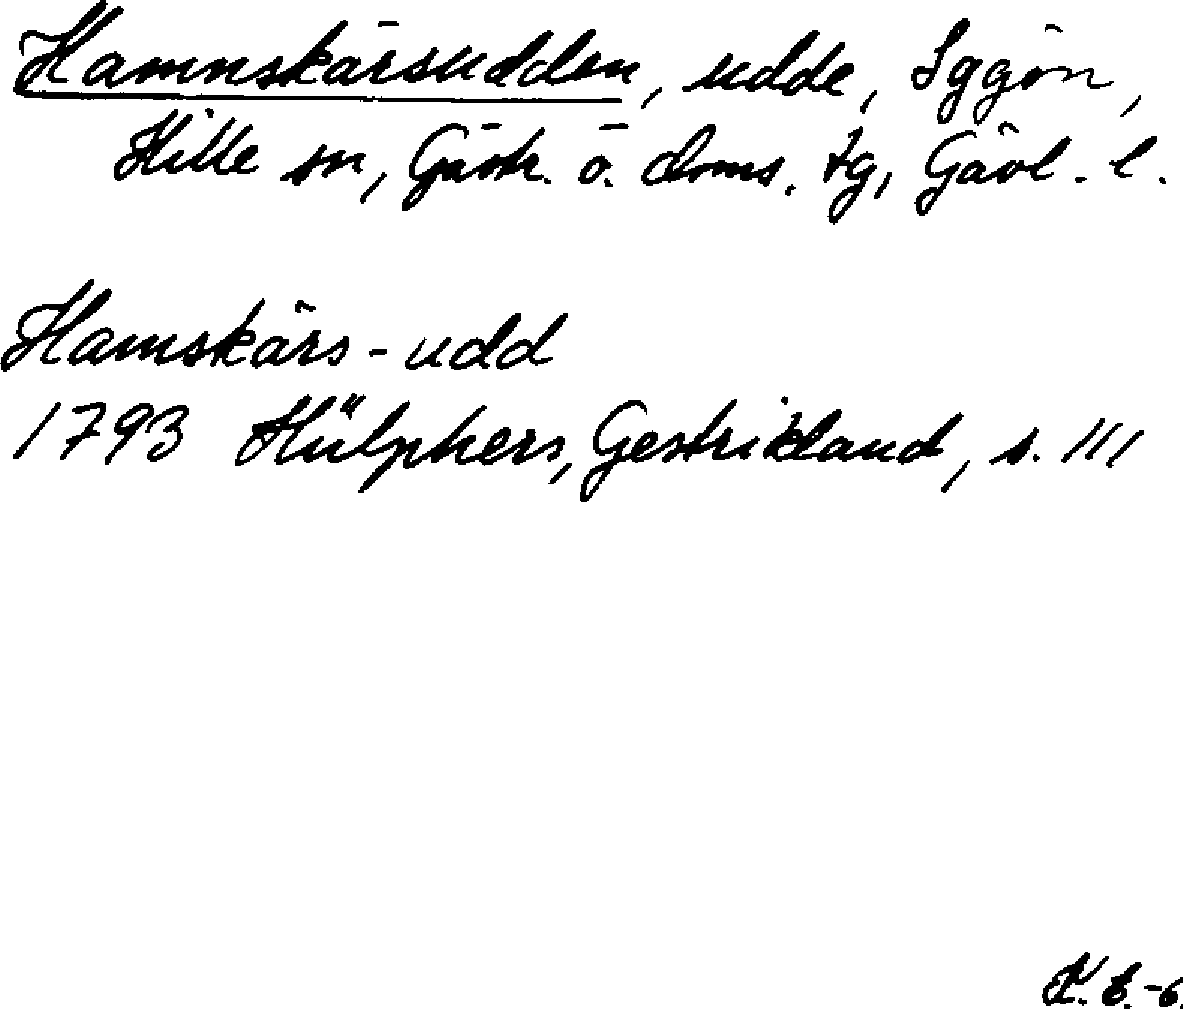 Hamnskärsudden, udde, Iggön,
Hille sn, Gästr. ö. doms. tg, Gävl. l.
Hamskärs-udd
1793 Hülphers, Gestrikland, s. 111